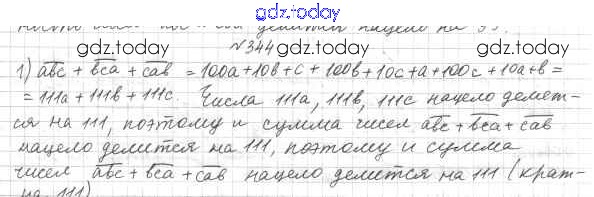 gdz.today
делится нацело на
№344
gdz.today gdz.today
1) abc + bca + cab = 100a+10b+c + 100b+10c+a+100c+10a+b =
= 111a + 111b + 111c. Числа 111a, 111b, 111c нацело делят-
ся на 111, поэтому и сумма чисел abc + bca + cab
нацело делится на 111, поэтому и сумма
gdz.today gdz.today
чисел abc + bca + cab нацело делится на 111 (крат-
на 111)